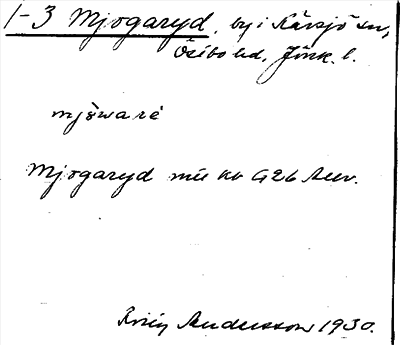 1-3 Mjogaryd, by i Kärsjö sn,
Östbo hd, Jönk. l.
mjo̊warė
Mjogaryd mtl kb G26 Auv.
Andersson 1930.